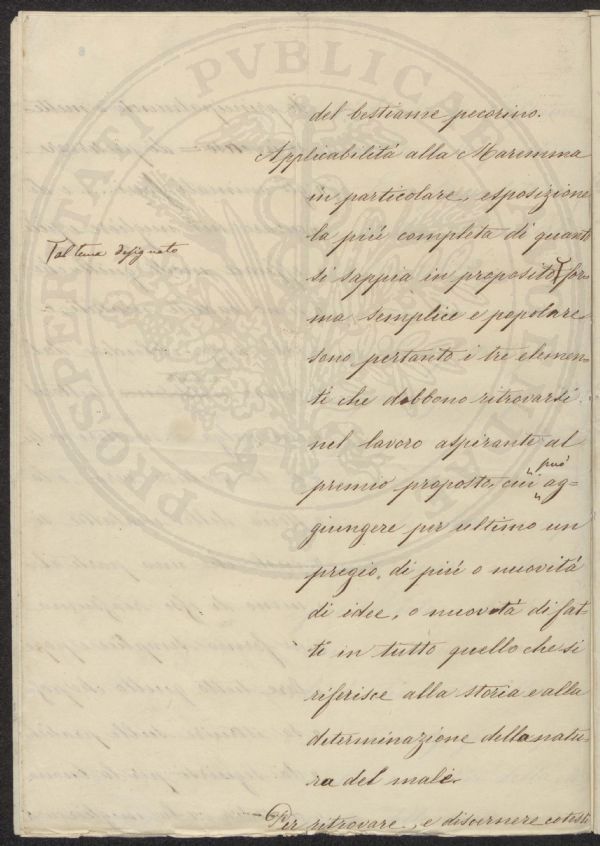 del bestiame pecorino.
Applicabilità alla Maremma
in particolare, esposizione
la più completa di quanto
si sappia in proposito Γ for-
Γ al tema designato
ma semplice e popolare
sono pertanto i tre elemen-
ti che debbono ritrovarsi
nel lavoro aspirante al
premio proposto, cui può ag-
giungere per ultimo un
pregio, di più o nuovità
di idee, o nuovità di fat-
ti in tutto quello che si
riferisce alla storia e alla
determinazione della natu-
ra del male.
Per ritrovare, e discernere cotesti
PROSPERITATI PVBLICAE